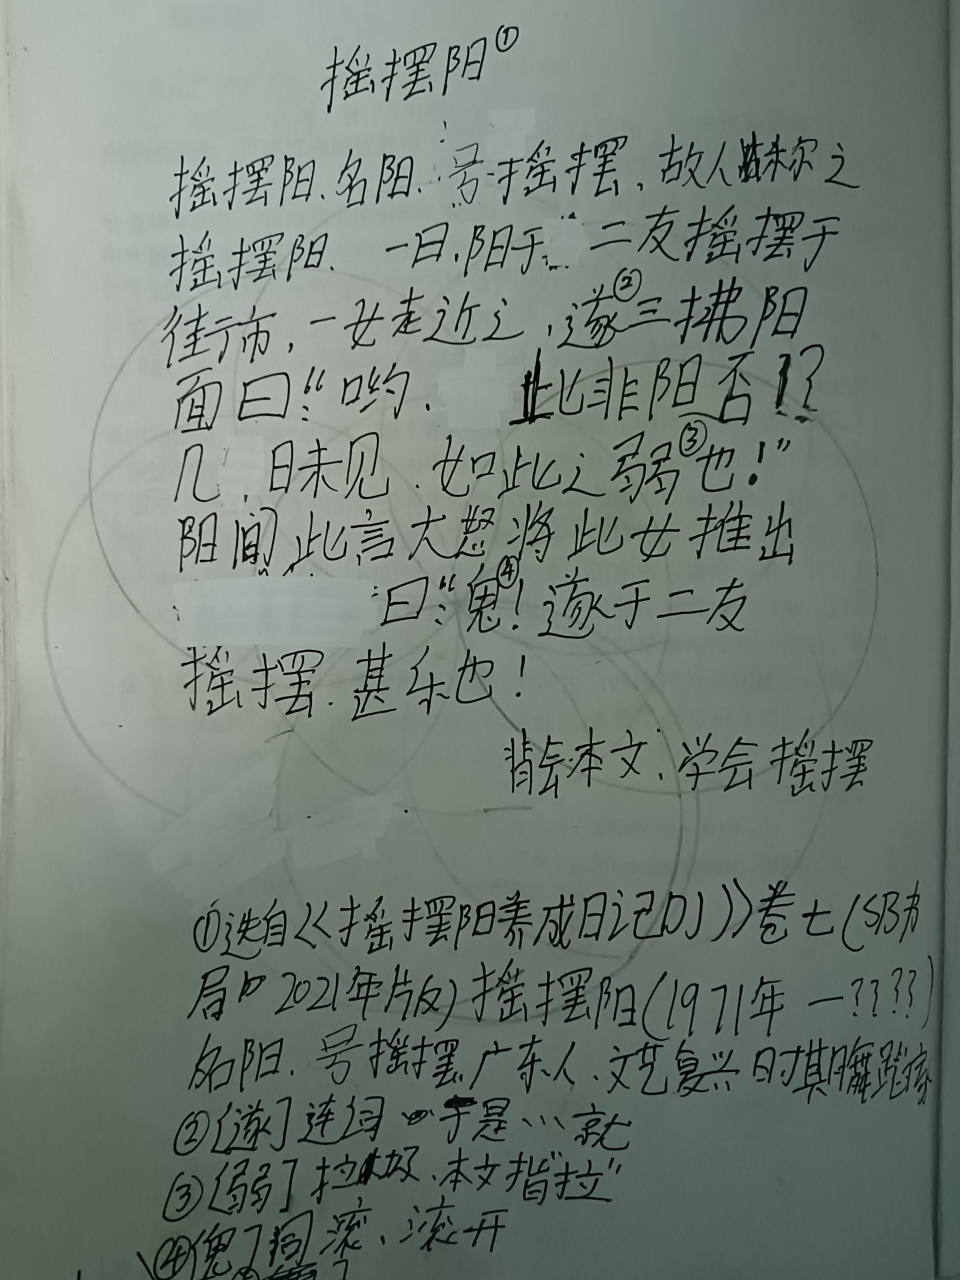 摇摆阳①
摇摆阳、名阳、号摇摆、故人称尔之
摇摆阳、一日、阳于 二友摇摆于
街市,一女走近之,遂②三拂阳
面曰:“哟、 此非阳否!?
几 日未见、如此之弱③也!”
阳闻此言大怒将此女推出
曰:“鬼④!遂于二友
摇摆、甚乐也!
背会本文、学会摇摆
①选自《摇摆阳养成日记DJ》卷七(SB书
局 2021年版)摇摆阳(1971年一????)
名阳、号摇摆、广东人、文艺复兴时期舞蹈家
②[遂]连词 …于是…就
③[弱]拉胯、本文指“拉”
④[傀]同滚、滚开